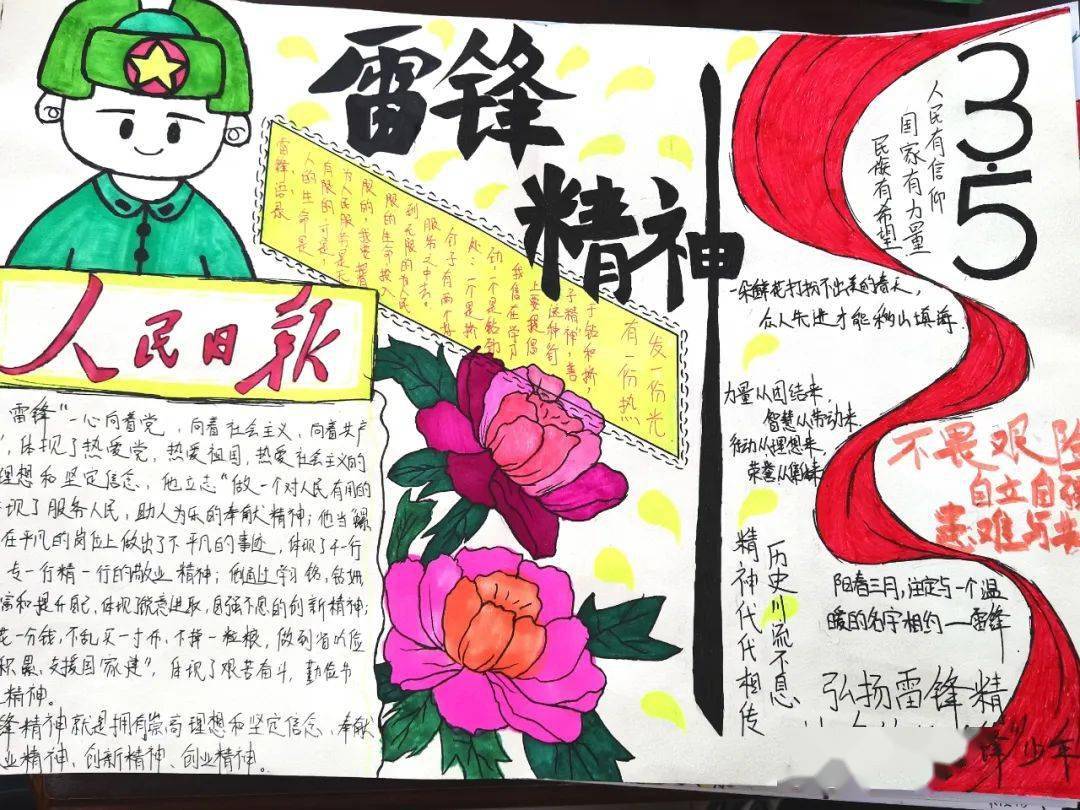 雷锋
精神
人民日报
雷锋语录
人的生命是
有限的,可是,
为人民服务是无
限的,我要把有
限的生命,投入
到无限的为人民
服务之中去。
钉子有两个好
处:一个是挤
劲,一个是钻劲
我们在学习
上要提倡
这种钉
子精神,善
于钻和挤,
有一份热
发一份光
雷锋"一心向着党,向着社会主义,向着共产
,体现了热爱党,热爱祖国,热爱社会主义的
理想和坚定信念,他立志"做一个对人民有用的
现了服务人民,助人为乐的奉献精神;他当螺
在平凡的岗位上做出了不平凡的事迹,体现了干一行
专一行精一行的敬业精神;
富和提升自己,体现锐意进取,自强不息的创新精神;
花一分钱,不乱买一寸布,不掉一粒粮,做到省吃俭
积累,支援国家建",体现了艰苦奋斗,勤俭节
精神。
锋精神就是拥有崇高理想和坚定信念、奉献
业精神、创新精神、创业精神。
3.5
人民有信仰
国家有力量
民族有希望
一朵鲜花打扮不出美的春天,
众人先进才能移山填海
力量从团结来,
智慧从劳动来
行动从理想来,
荣誉从集体来
不畏艰险
自立自强
患难与共
历史川流不息
精神代代相传
阳春三月,注定与一个温
暖的名字相约——雷锋
弘扬雷锋精
锋"少年